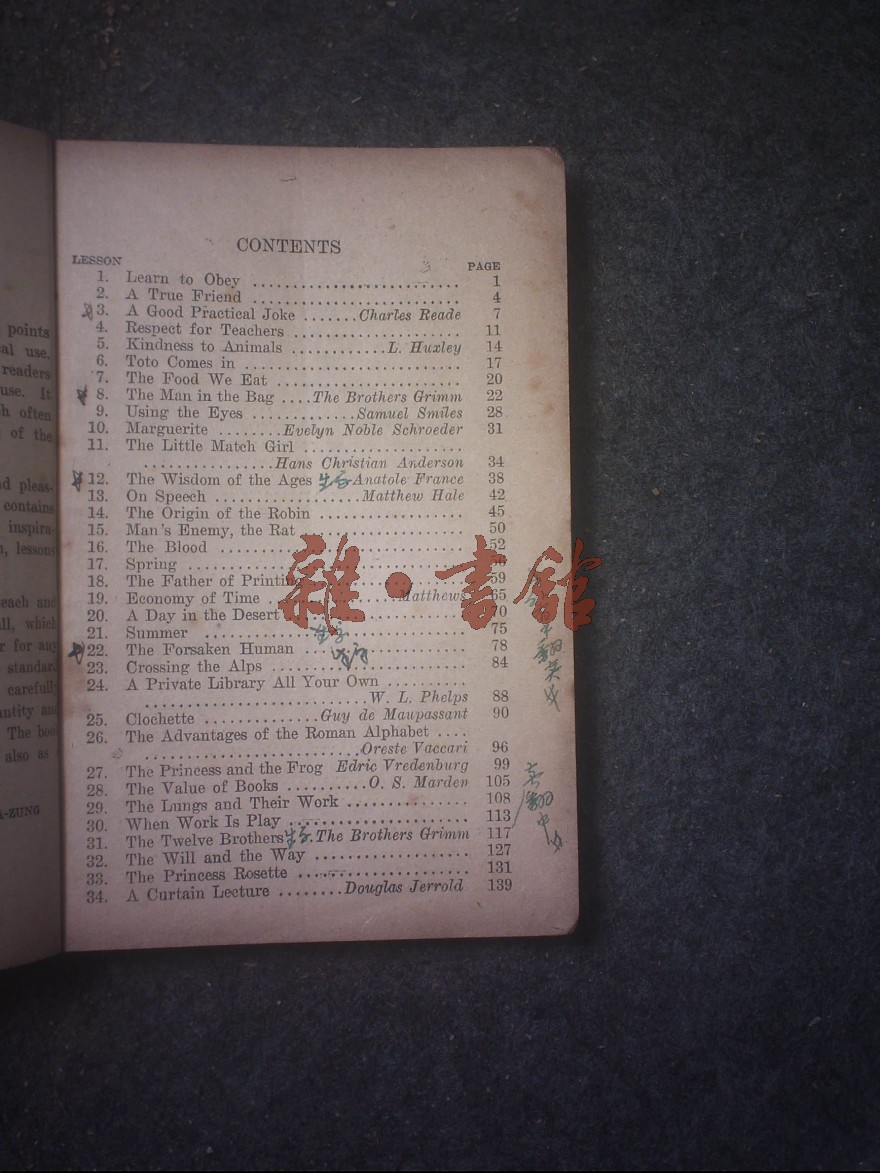 points
al use,
readers
use. It
h often
of the
d pleas-
contains
inspira-
n, lessons
each and
ll, which
r for any
standard
carefully
ntity and
The boo
also as
-ZUNG
CONTENTS
LESSON PAGE
1. Learn to Obey 1
2. A True Friend 4
3. A Good Practical Joke ....... Charles Reade 7
4. Respect for Teachers 11
5. Kindness to Animals ............ L. Huxley 14
6. Toto Comes in 17
7. The Food We Eat 20
8. The Man in the Bag .... The Brothers Grimm 22
9. Using the Eyes ............. Samuel Smiles 28
10. Marguerite ........ Evelyn Noble Schroeder 31
11. The Little Match Girl
Hans Christian Anderson 34
12. The Wisdom of the Ages 生字 Anatole France 38
13. On Speech .................. Matthew Hale 42
14. The Origin of the Robin 45
15. Man's Enemy, the Rat 50
16. The Blood 52
17. Spring
18. The Father of Printing 59
19. Economy of Time Matthews 65
20. A Day in the Desert 70
21. Summer 生字 75
22. The Forsaken Human 生字 78
23. Crossing the Alps 84
24. A Private Library All Your Own
W. L. Phelps 88
25. Clochette ............. Guy de Maupassant 90
26. The Advantages of the Roman Alphabet ....
Oreste Vaccari 96
27. The Princess and the Frog Edric Vredenburg 99
28. The Value of Books .......... O. S. Marden 105
29. The Lungs and Their Work 108
30. When Work Is Play 113
31. The Twelve Brothers 生字. The Brothers Grimm 117
32. The Will and the Way 127
33. The Princess Rosette 131
34. A Curtain Lecture ........ Douglas Jerrold 139
雜·書館